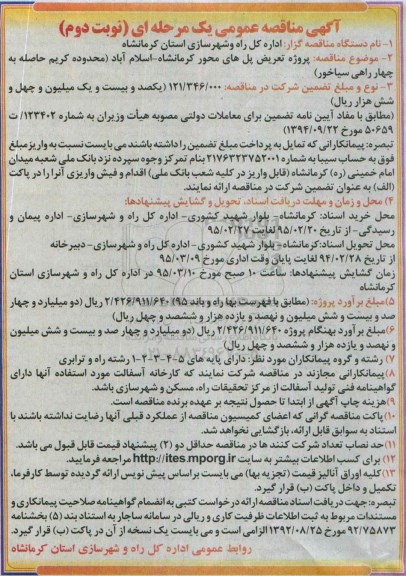 آگهی مناقصه عمومی یک مرحله ای (نوبت دوم)
۱- نام دستگاه مناقصه گزار: اداره کل راه وشهرسازی استان کرمانشاه
۲- موضوع مناقصه: پروژه تعریض پل های محور کرمانشاه-اسلام آباد (محدوده کریم حاصله به
چهار راهی سیاخور)
۳- نوع و مبلغ تضمین شرکت در مناقصه: ۱۲۱/۳۴۶/۰۰۰ (یکصد و بیست و یک میلیون و چهل و
شش هزار ریال)
(مطابق با مفاد آیین نامه تضمین برای معاملات دولتی مصوبه هیأت وزیران به شماره ۱۲۳۴۰۲/ت
۵۰۶۵۹ مورخ ۱۳۹۴/۰۹/۲۲)
تبصره: پیمانکارانی که تمایل به پرداخت مبلغ تضمین را داشته باشند می بایست نسبت به واریز مبلغ
فوق به حساب سیبا به شماره ۲۱۷۶۳۲۳۷۵۲۰۰۱ بنام تمرکز وجوه سپرده نزد بانک ملی شعبه میدان
امام خمینی (ره) کرمانشاه (قابل واریز در کلیه شعب بانک ملی) اقدام و فیش واریزی آنرا را در پاکت
(الف) به عنوان تضمین شرکت در مناقصه ارائه نمایند.
۴) محل و زمان و مهلت دریافت اسناد، تحویل و گشایش پیشنهادها:
محل خرید اسناد: کرمانشاه- بلوار شهید کشوری- اداره کل راه و شهرسازی- اداره پیمان و
رسیدگی- از تاریخ ۹۵/۰۲/۲۰ لغایت ۹۵/۰۲/۲۷
محل تحویل اسناد: کرمانشاه- بلوار شهید کشوری- اداره کل راه و شهرسازی- دبیرخانه
از تاریخ ۹۴/۰۲/۲۸ لغایت پایان وقت اداری مورخ ۹۵/۰۳/۰۹
زمان گشایش پیشنهادها: ساعت ۱۰ صبح مورخ ۹۵/۰۳/۱۰ در اداره کل راه و شهرسازی استان
کرمانشاه
۵)مبلغ بر آورد پروژه: (مطابق با فهرست بها راه و باند ۹۵) ۲/۴۲۶/۹۱۱/۶۴۰ ریال (دو میلیارد و چهار
صد و بیست و شش میلیون و نهصد و یازده هزار و ششصد و چهل ریال)
۶)مبلغ برآورد بهنگام پروژه ۲/۴۲۶/۹۱۱/۶۴۰ ریال (دو میلیارد و چهار صد و بیست و شش میلیون
و نهصد و یازده هزار و ششصد و چهل ریال)
۷) رشته و گروه پیمانکاران مورد نظر: دارای پایه های ۵-۴-۳-۲-۱ رشته راه و ترابری
۸)پیمانکارانی مجازند در مناقصه شرکت نمایند که کارخانه آسفالت مورد استفاده آنها دارای
گواهینامه فنی تولید آسفالت از مرکز تحقیقات راه، مسکن و شهرسازی باشد.
۹)هزینه چاپ آگهی از ابتدا تا حصول نتیجه بر عهده برنده مناقصه است.
۱۰)پاکت مناقصه گرانی که اعضای کمیسیون مناقصه از عملکرد قبلی آنها رضایت نداشته باشند با
استناد به سوابق قابل ارائه، بازگشایی نخواهد شد.
۱۱)حد نصاب تعداد شرکت کنند ها در مناقصه حداقل دو (۲) پیشنهاد قیمت قابل قبول می باشد.
۱۲) برای کسب اطلاعات بیشتر به سایت http://ites.mporg.ir مراجعه فرمایید.
۱۳) کلیه اوراق آنالیز قیمت (تجزیه بها) می بایست براساس پیش نویس ارائه گردیده توسط کارفرما،
تکمیل و داخل پاکت (ب) قرار گیرد.
تبصره: جهت دریافت اسناد مناقصه ارائه درخواست کتبی به انضمام گواهینامه صلاحیت پیمانکاری و
مستندات مربوط به ثبت اطلاعات ظرفیت کاری و ریالی در سامانه ساجار به استناد بند (۵) بخشنامه
۹۲/۷۵۸۷۳ مورخ ۱۳۹۲/۰۸/۲۵ الزامی است و می بایست یک نسخه از آن در پاکت (ب) قرار گیرد.
روابط عمومی اداره کل راه و شهرسازی استان کرمانشاه